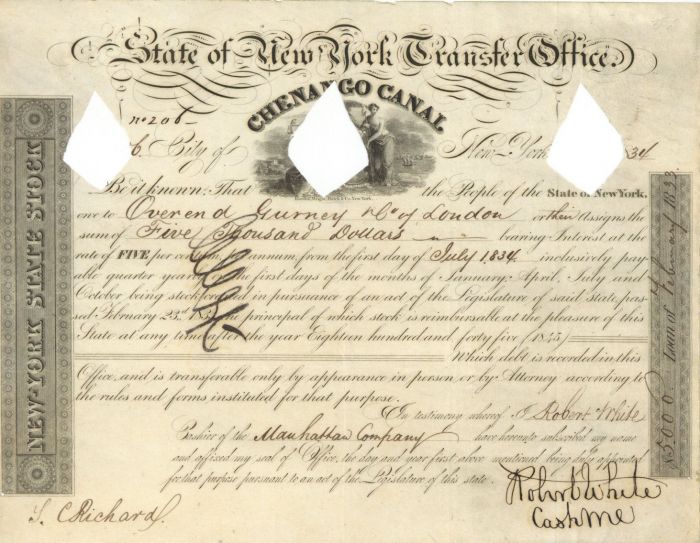 State of New York Transfer Office.
CHENANGO CANAL
No 206
City of New-York 34
Be it known: That the People of the State of New York,
owe to Overend Gurney & Co of London or their Assigns the
sum of Five Thousand Dollars bearing Interest at the
rate of FIVE per annum, from the first day of July 1834 inclusively pay
able quarter first days of the months of January, April, July and
October being stock in pursuance of an act of the Legislature of said State, pas
sed February 23, the principal of which stock is reimbursable at the pleasure of this
State at any time after the year Eighteen hundred and forty five (1845)
Which debt is recorded in this
Office, and is transferable only by appearance in person or by Attorney according to
the rules and forms instituted for that purpose.
In testimony whereof I Robert White
Cashier of the Manhattan Company have hereunto subscribed my name
and affixed my seal of Office, the day and year first above mentioned being duly appointed
for that purpose pursuant to an act of the Legislature of this state.
Robt White
Cash
NEW-YORK STATE STOCK
$5000 Loan of February 1833